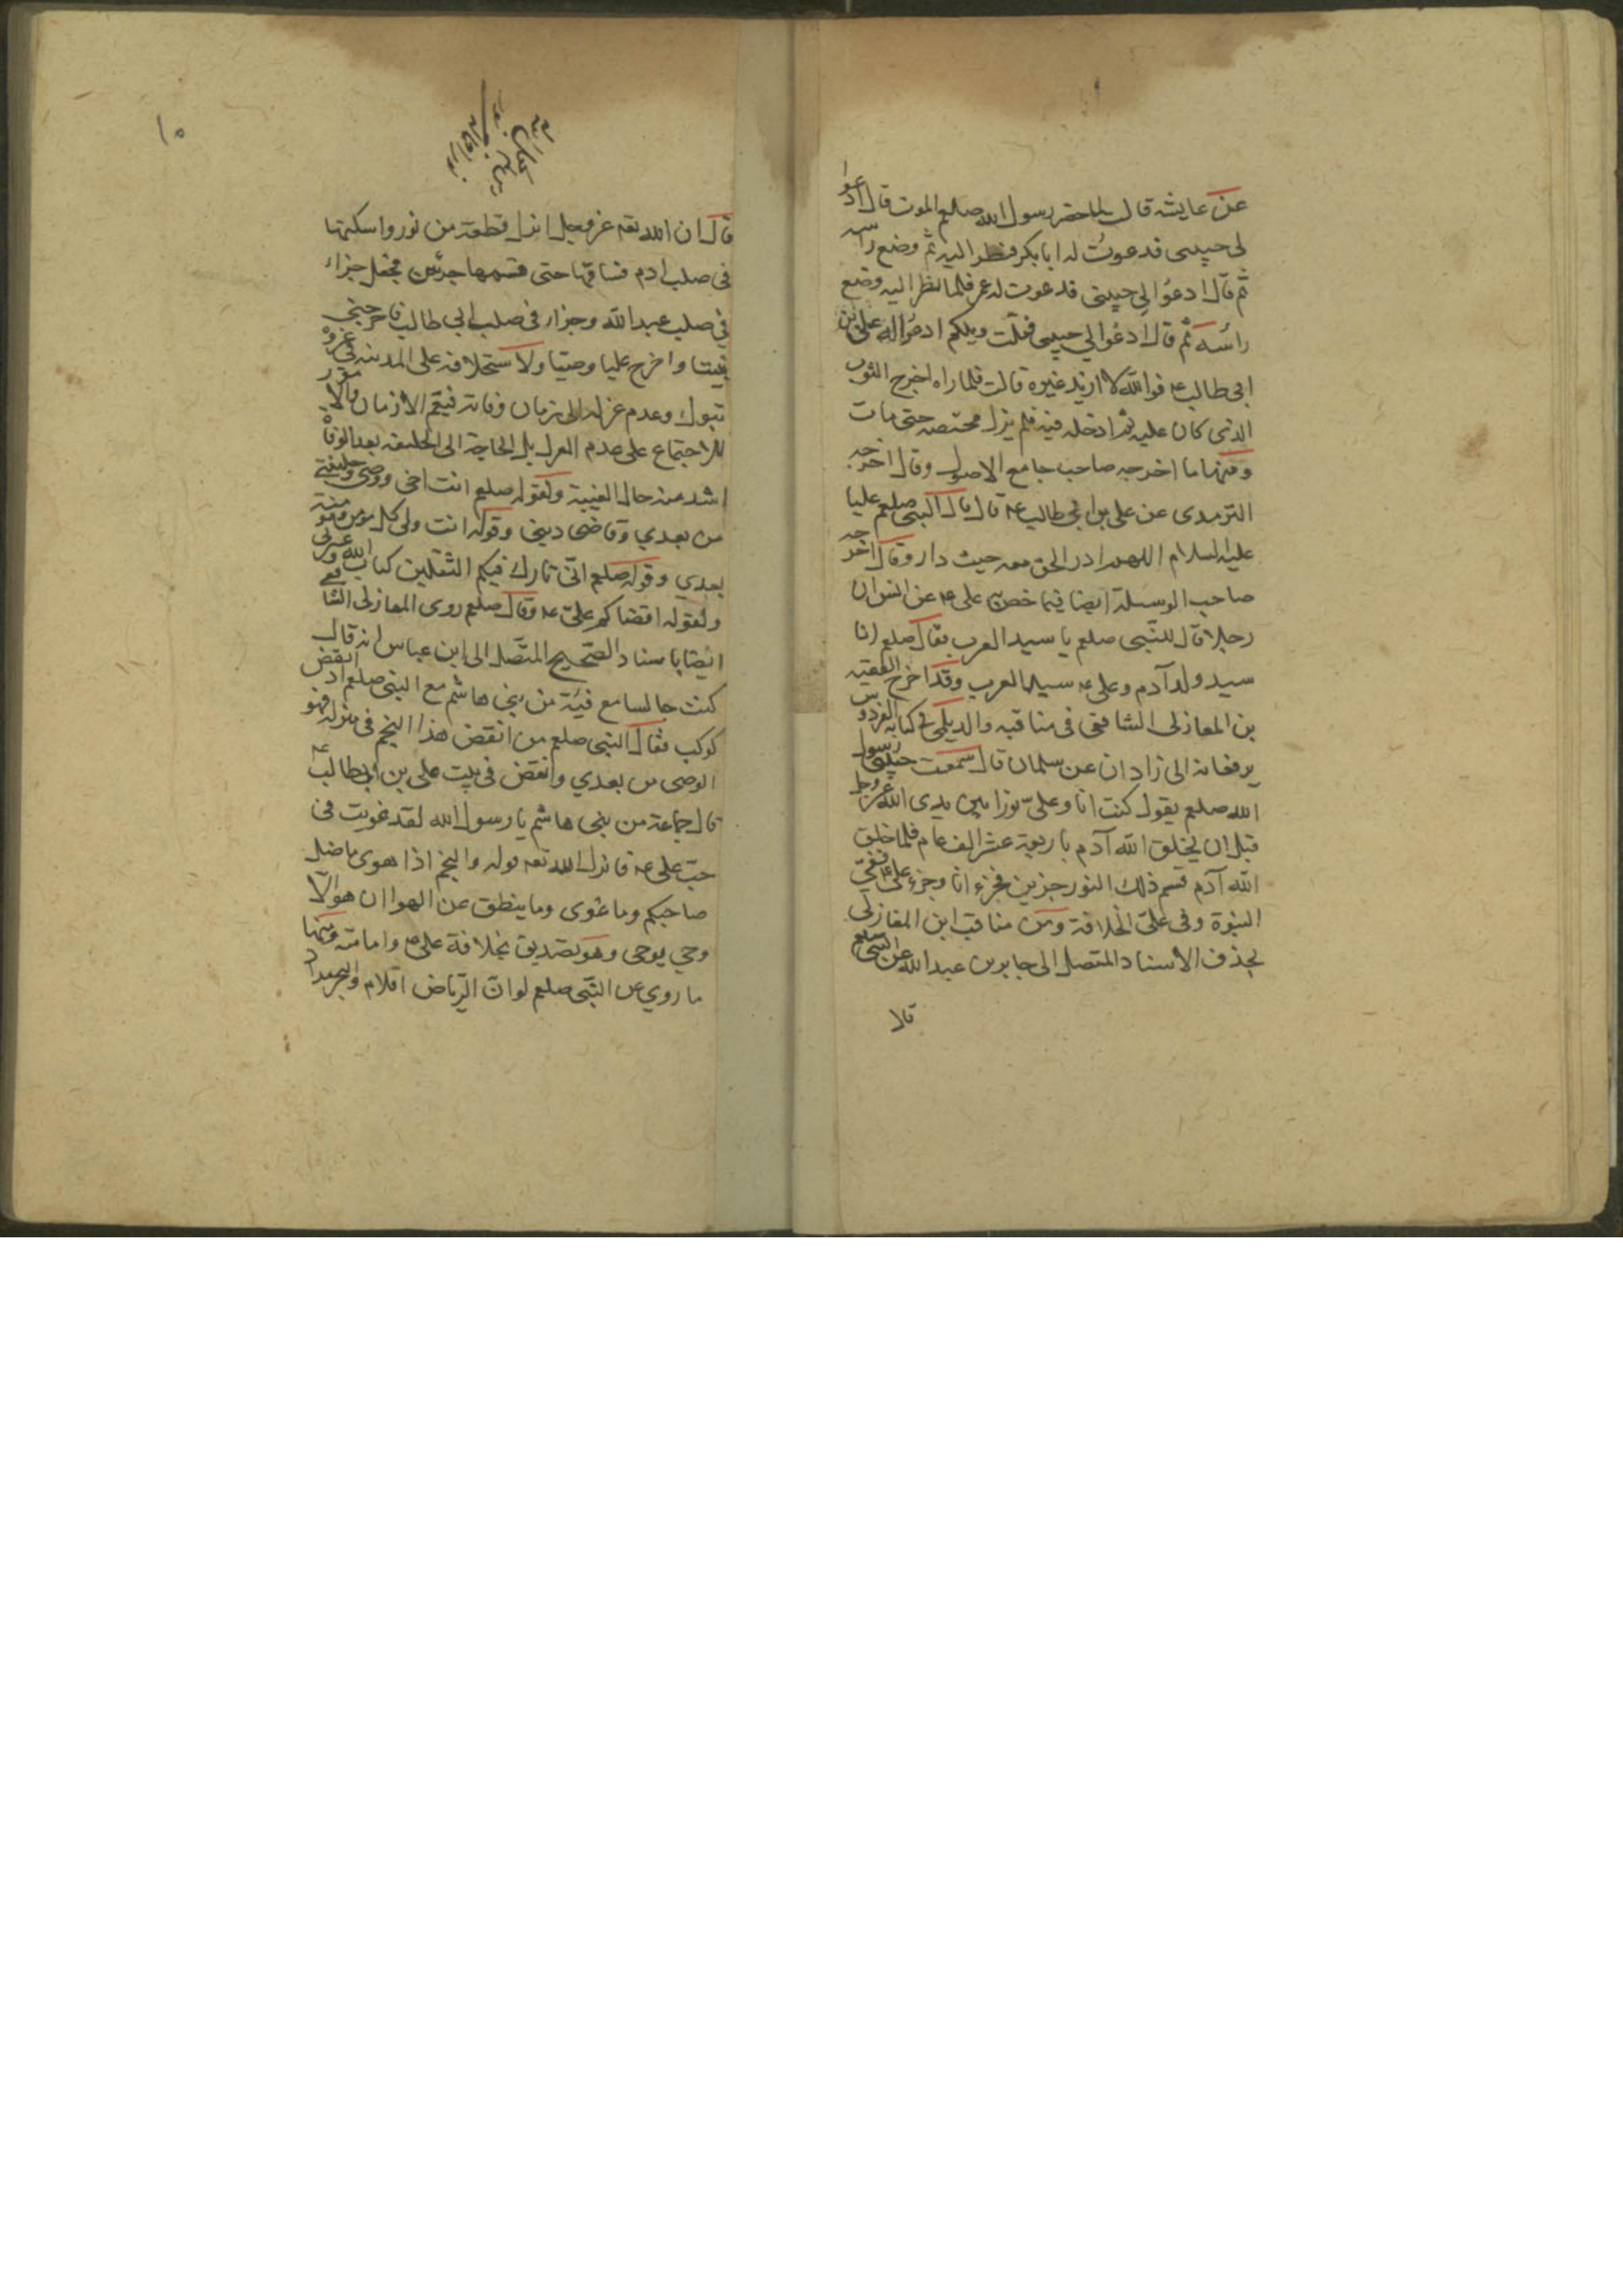 عن عايشه قال لما حضر رسول الله صلعم الموت قال ادعوا
لى حبيبى فدعوت له ابا بكر فنظر اليه ثم وضع راسه
ثم قال ادعوا لي حبيبى فدعوت له عمر فلما نظر اليه وضع
راسه ثم قال ادعوا لي حبيبى فقلت ويلكم ادعوا له على بن
ابى طالب عه فوالله لا اريد غيره قالت فلما راه اخرج الثوب
الذى كان عليه ثم ادخله فيه فلم يزل محتضنه حتى مات
ومنها ما اخرجه صاحب جامع الاصول وقال اخرجه
الترمدى عن على بن ابي طالب عه قال قال النبى صلعم عليا
عليه السلام اللهم ادر الحق معه حيث دار وقال اخرجه
صاحب الوسيلة ايضا فيما خص به على عه عن انس ان
رجلا قال للنبى صلعم يا سيد العرب فقال صلعم انا
سيد ولد آدم وعلى عه سيد العرب وقد اخرج الفقيه
بن المغازلى الشافعى فى مناقبه والديلمى فى كتابه الفردوس
يرفعانه الى زادان عن سلمان قال سمعت حبيبى رسول
الله صلعم يقول كنت انا وعلى نورا بين يدى الله عز وجل
قبل ان يخلق الله آدم باربعة عشر الف عام فلما خلق
الله آدم قسم ذلك النور جزين فجزء انا وجزء على عه ففيّ
النبوة وفى على الخلافة ومن مناقب ابن المغازلى
بحذف الاسناد المتصل الى جابر بن عبد الله عن النبى صلعم
قال
١٥
قال ان الله تعه عز وجل انزل قطعة من نور واسكنها
فى صلب ادم فساقها حتى قسمها جزئين فجعل جزاء
في صلب عبد الله وجزاء فى صلب ابي طالب فاخرجنى
نبيتا واخرج عليا وصيتا ولاستخلافه على المدينه فى غزوة
تبوك وعدم عزله الى زمان وفاته فيعم الازمان والامور
للاجتماع على عدم العزل بل الحاجة الى الخليفه بعد الوفاة
اشد من حال الغيبة ولقوله صلعم انت اخى ووصى وخليفتى
من بعدي وقاضى دينى وقوله انت ولى كل مؤمن ومؤمنة
بعدي وقوله صلعم انّى تارك فيكم الثقلين كتاب الله وعترتى
ولقوله اقضاكم علىّ عه وقال صلعم روى المغازلى الشافعي
ايضا باسناد الصحيح المتصل الى ابن عباس انه قال
كنت جالسا مع فئة من بنى هاشم مع النبى صلعم اذ انقض
كوكب فقال النبى صلعم من انقض هذا النجم فى منزله فهو
الوصى من بعدي وانقض فى بيت على بن ابى طالب عه
قال جماعة من بنى هاشم يا رسول الله لقد غويت فى
حب على عه فانزل الله تعه قوله والنجم اذا هوى ما ضل
صاحبكم وما غوى وما ينطق عن الهوا ان هو الّا
وحي يوحى وهو تصديق بخلافة على عه وامامته ومنها
ما روي عن النبى صلعم لو ان الرياض اقلام والبحر مداد